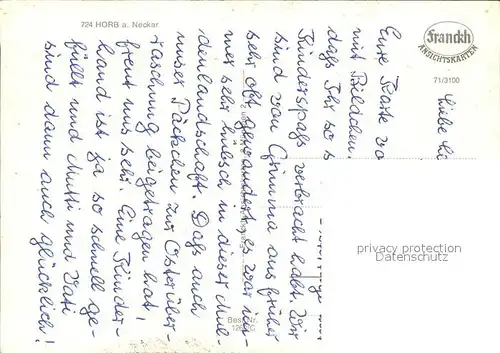 724 HORB a. Neckar
Franckh
ANSICHTSKARTEN
71/3100
Liebe
Eine Karte
mit Bildchen.
daß Ihr so
Kinderspaß verbracht habt. Wir
sind von Grimma aus früher
sehr oft gewandert, es war im-
mer sehr hübsch in dieser Mul-
denlandschaft. Daß auch
unser Päckchen zur Osterüber-
raschung beigetragen hat,
freut uns sehr. Eine Kinder-
hand ist ja so schnell ge-
füllt und Mutti und Vati
sind dann auch glücklich!
Best.Nr.
privacy protection
Datenschutz